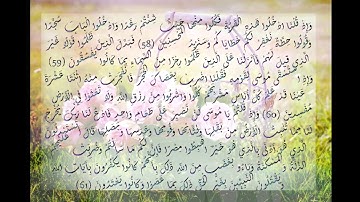 وَإِذْ قُلْنَا ادْخُلُوا هَذِهِ الْقَرْيَةَ فَكُلُوا مِنْهَا حَيْثُ شِئْتُمْ رَغَدًا وَادْخُلُوا الْبَابَ سُجَّدًا
وَقُولُوا حِطَّةٌ نَغْفِرْ لَكُمْ خَطَايَاكُمْ وَسَنَزِيدُ الْمُحْسِنِينَ (58) فَبَدَّلَ الَّذِينَ ظَلَمُوا قَوْلًا غَيْرَ
الَّذِي قِيلَ لَهُمْ فَأَنْزَلْنَا عَلَى الَّذِينَ ظَلَمُوا رِجْزًا مِنَ السَّمَاءِ بِمَا كَانُوا يَفْسُقُونَ (59)
وَإِذِ اسْتَسْقَى مُوسَى لِقَوْمِهِ فَقُلْنَا اضْرِبْ بِعَصَاكَ الْحَجَرَ فَانْفَجَرَتْ مِنْهُ اثْنَتَا عَشْرَةَ
عَيْنًا قَدْ عَلِمَ كُلُّ أُنَاسٍ مَشْرَبَهُمْ كُلُوا وَاشْرَبُوا مِنْ رِزْقِ اللَّهِ وَلَا تَعْثَوْا فِي الْأَرْضِ
مُفْسِدِينَ (60) وَإِذْ قُلْتُمْ يَا مُوسَى لَنْ نَصْبِرَ عَلَى طَعَامٍ وَاحِدٍ فَادْعُ لَنَا رَبَّكَ يُخْرِجْ
لَنَا مِمَّا تُنْبِتُ الْأَرْضُ مِنْ بَقْلِهَا وَقِثَّائِهَا وَفُومِهَا وَعَدَسِهَا وَبَصَلِهَا قَالَ أَتَسْتَبْدِلُونَ
الَّذِي هُوَ أَدْنَى بِالَّذِي هُوَ خَيْرٌ اهْبِطُوا مِصْرًا فَإِنَّ لَكُمْ مَا سَأَلْتُمْ وَضُرِبَتْ عَلَيْهِمُ
الذِّلَّةُ وَالْمَسْكَنَةُ وَبَاءُوا بِغَضَبٍ مِنَ اللَّهِ ذَلِكَ بِأَنَّهُمْ كَانُوا يَكْفُرُونَ بِآيَاتِ اللَّهِ
وَيَقْتُلُونَ النَّبِيِّينَ بِغَيْرِ الْحَقِّ ذَلِكَ بِمَا عَصَوْا وَكَانُوا يَعْتَدُونَ (61)